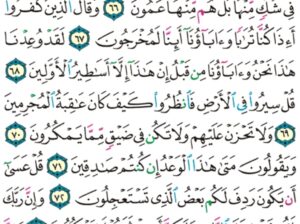 فِى شَكٍّ مِّنْهَا بَلْ هُم مِّنْهَا عَمُونَ ٦٦ وَقَالَ ٱلَّذِينَ كَفَرُوٓا۟
أَءِذَا كُنَّا تُرَٰبًا وَءَابَآؤُنَآ أَئِنَّا لَمُخْرَجُونَ ٦٧ لَقَدْ وُعِدْنَا
هَٰذَا نَحْنُ وَءَابَآؤُنَا مِن قَبْلُ إِنْ هَٰذَآ إِلَّآ أَسَٰطِيرُ ٱلْأَوَّلِينَ ٦٨
قُلْ سِيرُوا۟ فِى ٱلْأَرْضِ فَٱنظُرُوا۟ كَيْفَ كَانَ عَٰقِبَةُ ٱلْمُجْرِمِينَ
٦٩ وَلَا تَحْزَنْ عَلَيْهِمْ وَلَا تَكُن فِى ضَيْقٍ مِّمَّا يَمْكُرُونَ ٧٠
وَيَقُولُونَ مَتَىٰ هَٰذَا ٱلْوَعْدُ إِن كُنتُمْ صَٰدِقِينَ ٧١ قُلْ عَسَىٰٓ
أَن يَكُونَ رَدِفَ لَكُم بَعْضُ ٱلَّذِى تَسْتَعْجِلُونَ ٧٢ وَإِنَّ رَبَّكَ